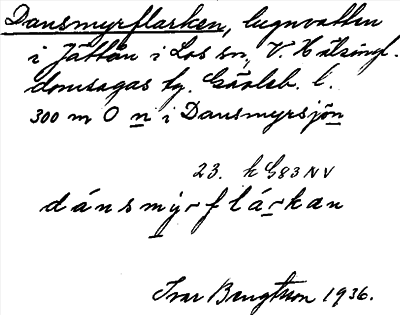 Dansmyrflarken, lugnvatten
i Jättån i Los sn, V. Hälsingl.
domsagas tg. Gävleb. l.
300 m O n i Dansmyrsjön
23. h G83NV
dánsmýrflárkan
Ivar Bengtsson 1936.